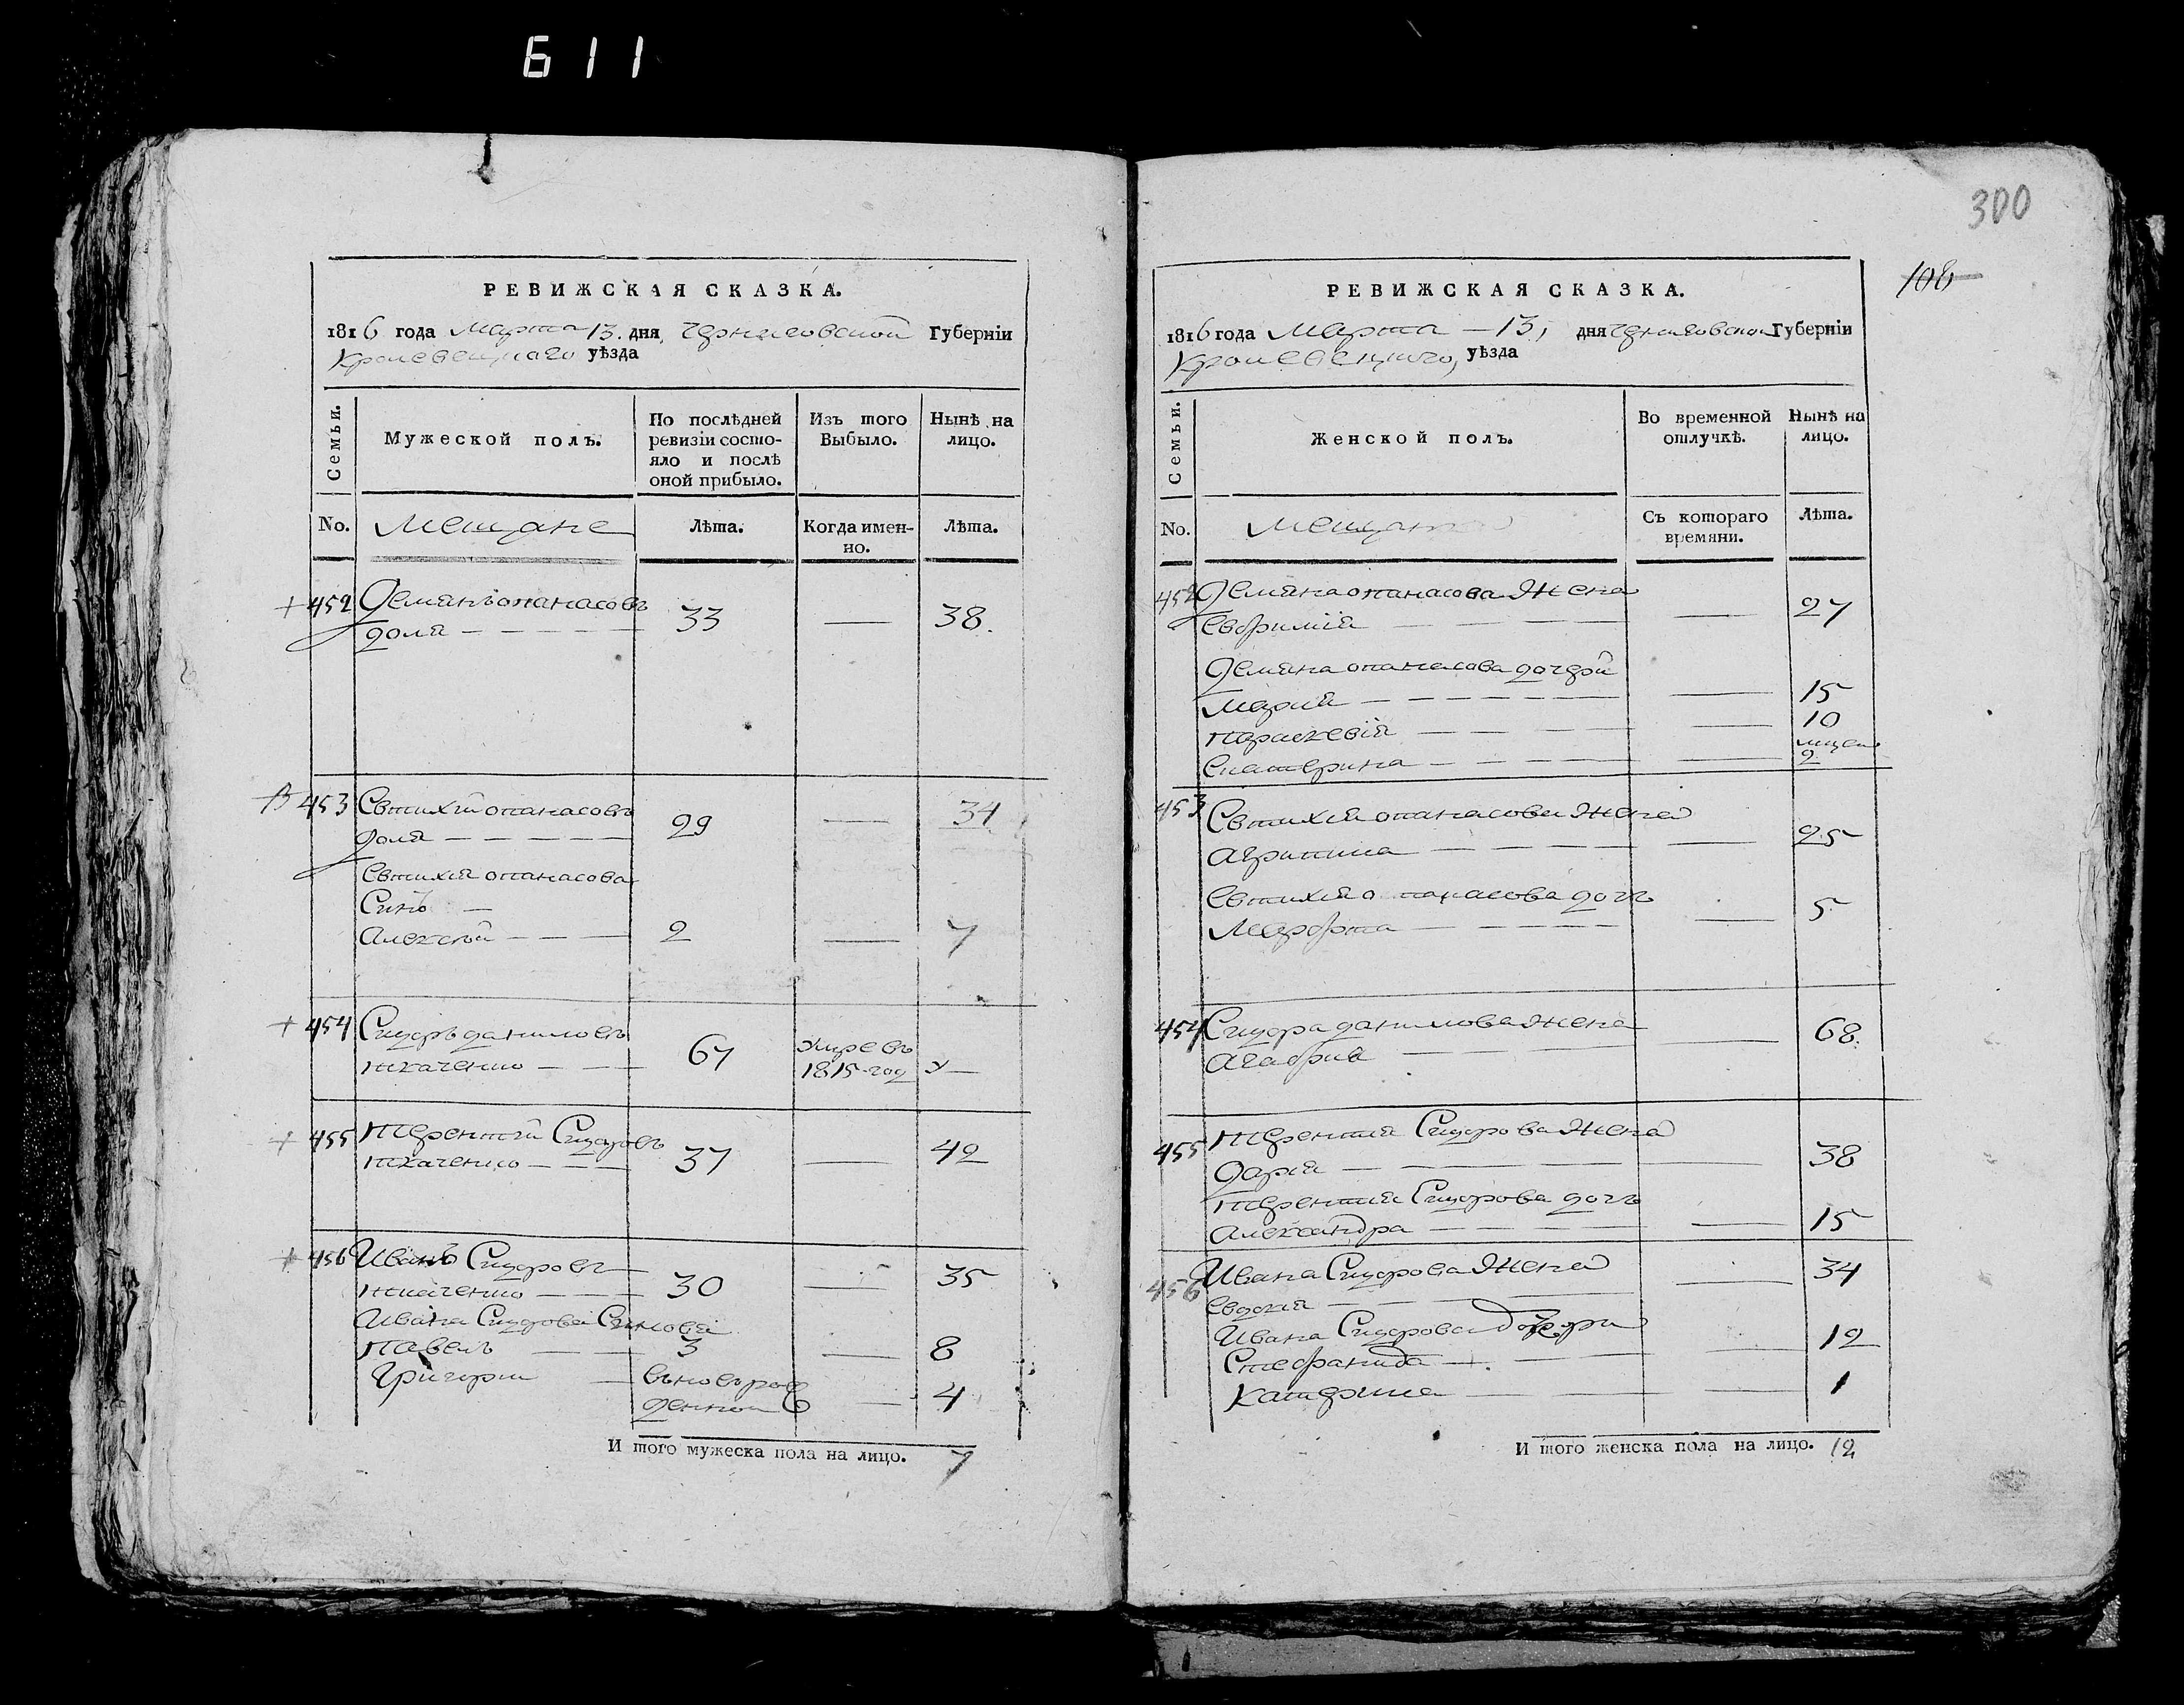 611
300
108
РЕВИЖСКАЯ СКАЗКА.
1816 года Марта 13. дня, Черниговской Губерніи
Кролевецкаго уѣзда
Семьи. Мужеской полъ. По послѣдней ревизіи состояло и послѣ оной прибыло. Изъ того Выбыло. Нынѣ на лицо.
No. Мещане Лѣта. Когда именно. Лѣта.
452 Демянъ опанасовъ
доля 33 — 38.
453 Евтихій опанасовъ
доля 29 — 34
Евтихія опанасова
Синъ —
Алексѣй 2 — 7
454 Сидоръ даниловъ
ткаченко 67 умре въ 1815 год у —
455 Терентій Сидоровъ
ткаченко 37 — 42
456 Иванъ Сидоровъ
ткаченко 30 — 35
Ивана Сидорова Синовя
Павелъ 3 — 8
Григории вновь рожденной — 4
И того мужеска пола на лицо. 7
РЕВИЖСКАЯ СКАЗКА.
1816 года Марта — 13, дня Черниговской Губерніи
Кролевецкаго, уѣзда
Семьи. Женской полъ. Во временной отлучкѣ. Нынѣ на лицо.
No. Съ котораго времяни. Лѣта.
452 Демяна опанасова Жена
Евфимія — 27
Демяна опанасова дочери
Марія — 15
Параскевія — 10
Екатерина — 2
453 Евтихія опанасова Жена
Агрипина — 25
Евтихія опанасова дочъ
Марфта — 5
454 Сидора данилова Жена
Агафия — 68.
455 Терентия Сидорова Жена
Дарія — 38
Терентия Сидорова дочъ
Александра — 15
456 Ивана Сидорова Жена
Евдокия — 34
Ивана Сидорова Дочери
Стефанида — 12
Катерина — 1
И того женска пола на лицо. 12